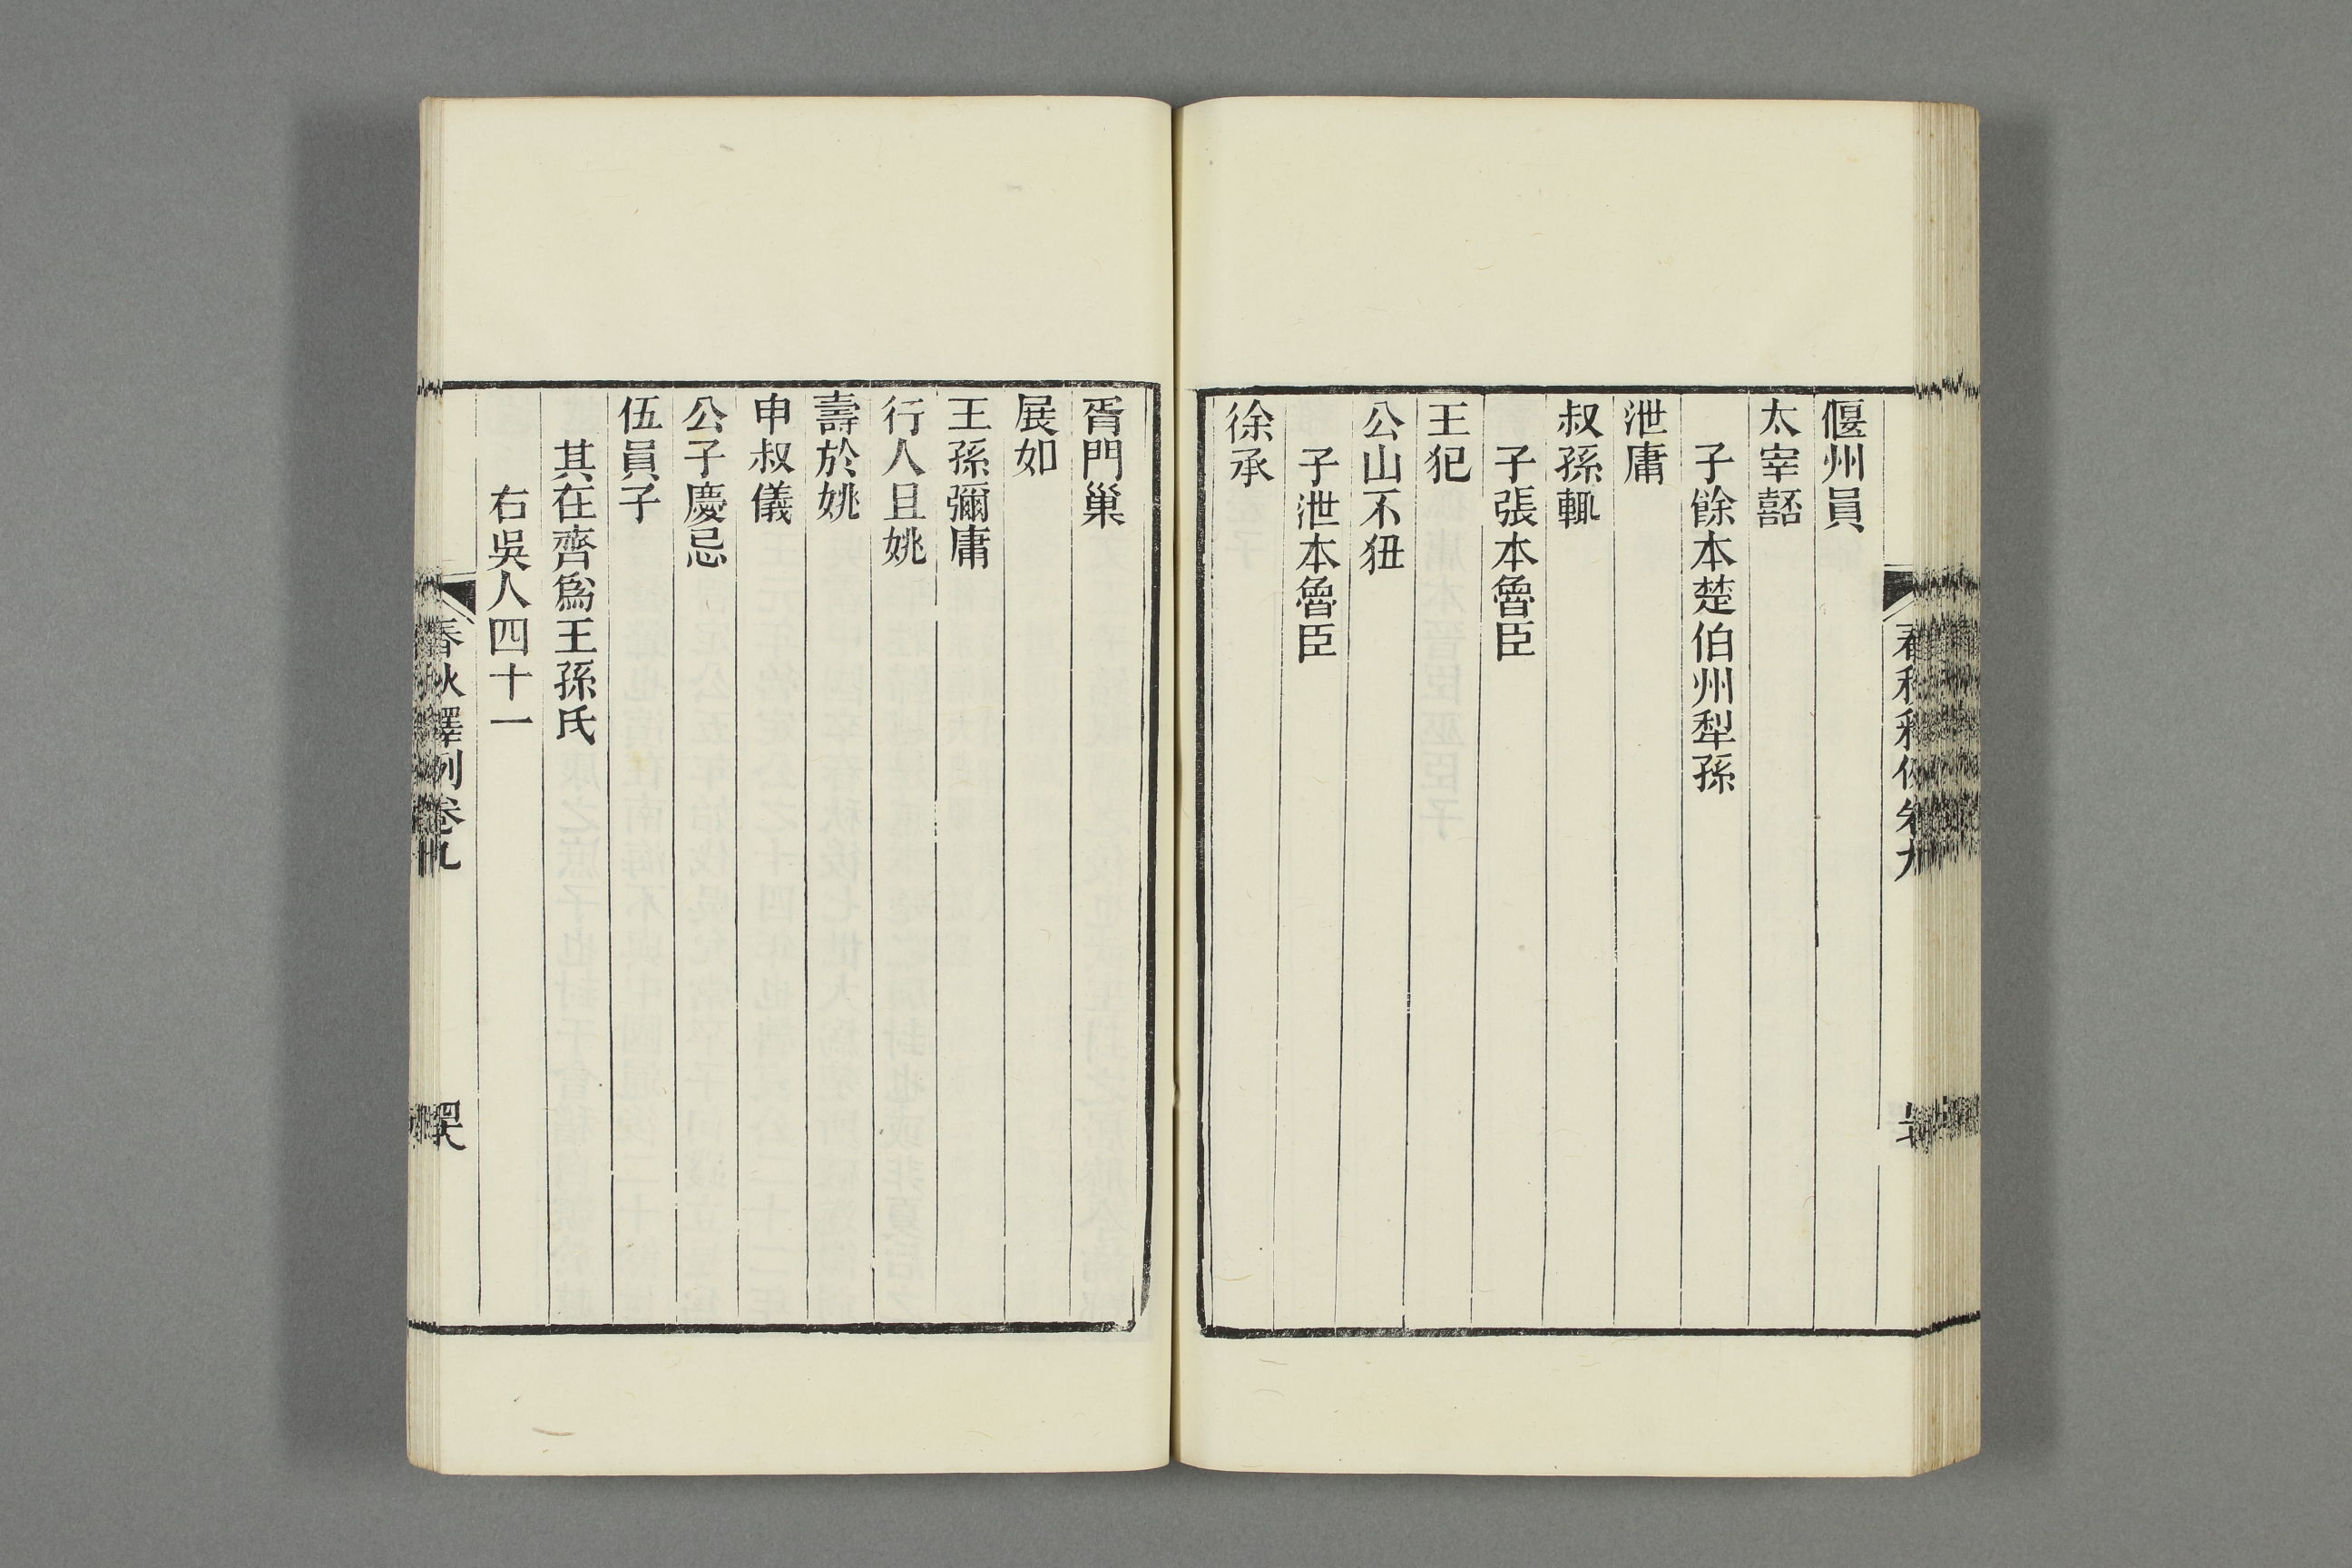 偃州員
太宰嚭
子餘本楚伯州犁孫
泄庸
叔孫輒
子張本魯臣
王犯
公山不狃
子泄本魯臣
徐承
胥門巢
展如
王孫彌庸
行人且姚
壽於姚
申叔儀
公子慶忌
伍員子
其在齊爲王孫氏
右吳人四十一
春秋釋例卷九